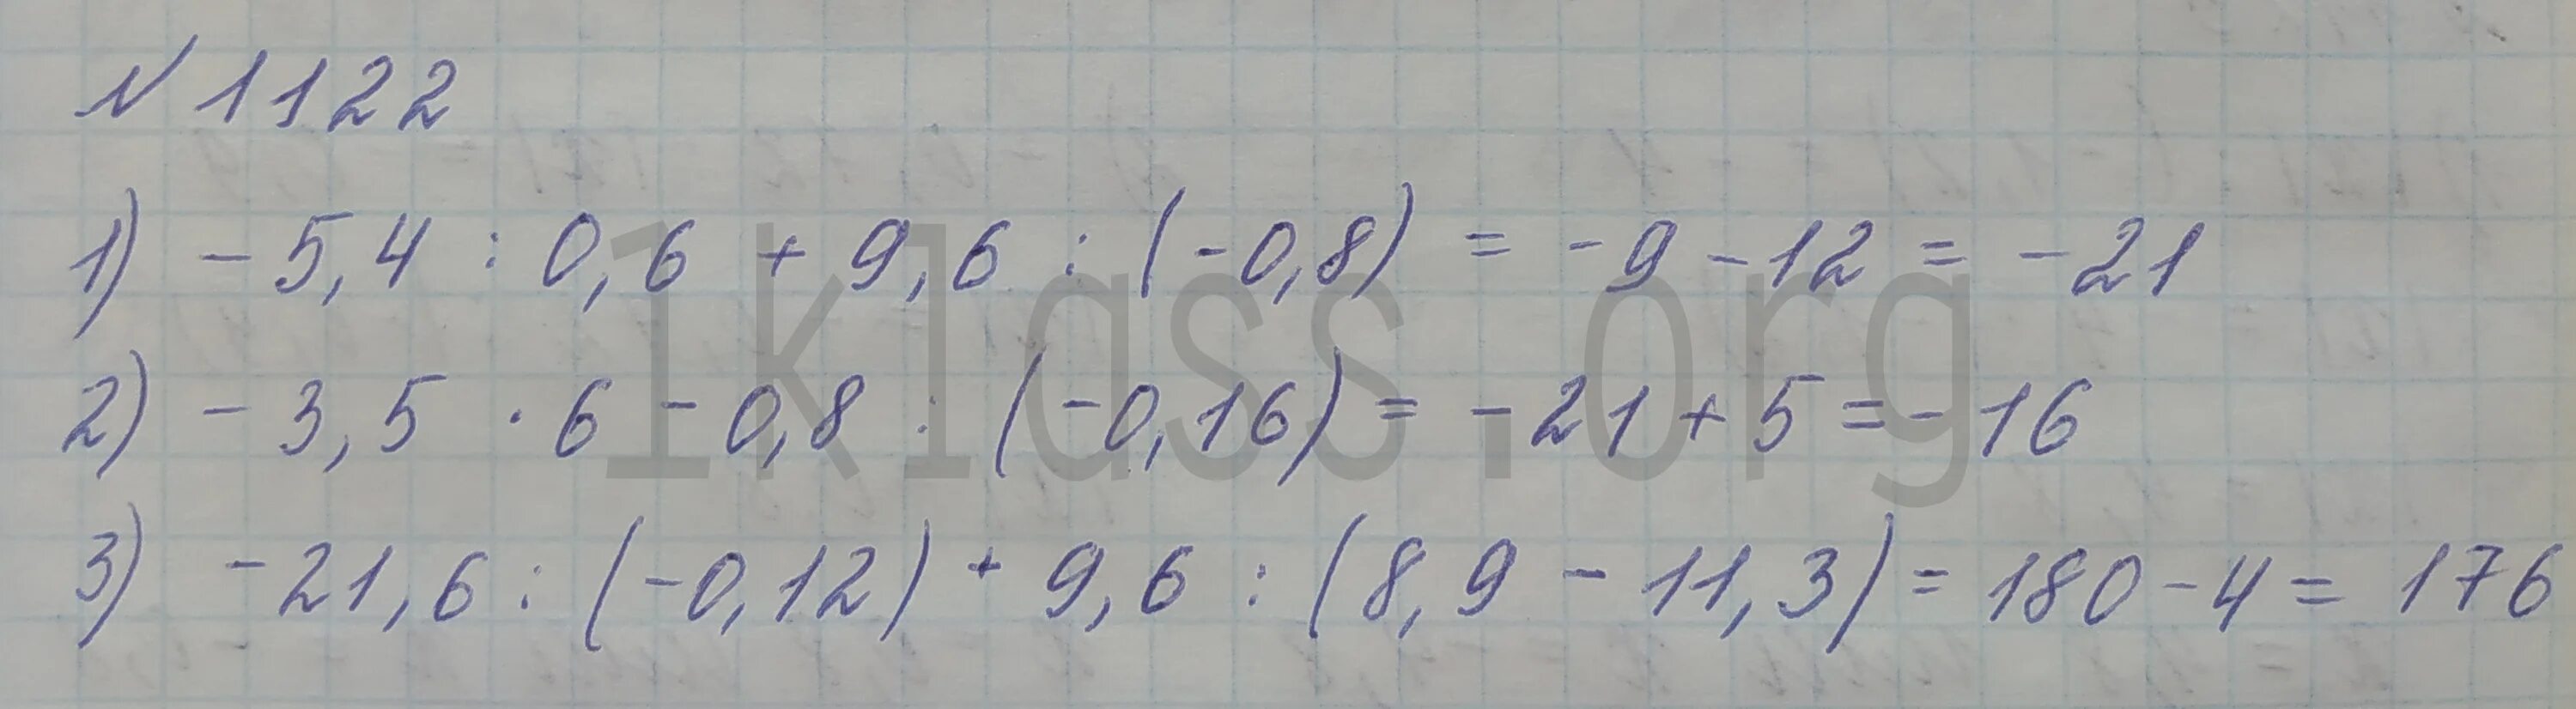 N 1122
1) - 5,4 : 0,6 + 9,6 : (-0,8) = -9 -12 = -21
2) - 3,5 · 6 - 0,8 : (-0,16) = -21 + 5 = -16
3) -21,6 : (-0,12) + 9,6 : (8,9 - 11,3) = 180 - 4 = 176
1klass.org